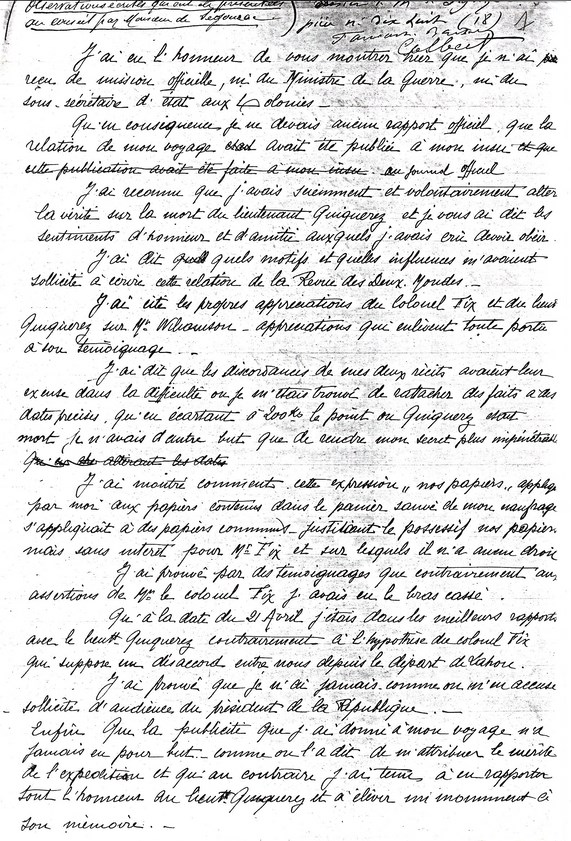 Observations écrites qui ont été présentées
au conseil par Monsieur de Segonzac
pièce n° dix huit (18)
J'ai eu l'honneur de vous montrer hier que je n'ai pas
reçu de mission officielle, ni du Ministre de la Guerre, ni du
sous-sécrétaire d'état aux Colonies -
Qu'en conséquence, je ne devais aucun rapport officiel, que la
relation de mon voyage avait été publiée à mon insu et que
cette publication avait été faite à mon insu. au journal officiel
J'ai reconnu que j'avais sciemment et volontairement altéré
la vérité sur la mort du lieutenant Quiquerez et je vous ai dit les
sentiments d'honneur et d'amitié auxquels j'avais cru devoir obéir.
J'ai dit quels motifs et quelles influences m'avaient
sollicité à écrire cette relation de la Revue des Deux. Mondes. -
J'ai cité les propres appréciations du Colonel Fix et du lieut
Quiquerez sur Mr Williamson - appréciations qui enlèvent toute portée
à son témoignage. -
J'ai dit que les discordances de mes deux récits avaient leur
excuse dans la difficulté où je m'étais trouvé de rattacher des faits à des
dates précises, qu'en écartant à 200 km le point où Quiquerez était
mort, je n'avais d'autre but que de rendre mon secret plus impénétrable
Qu'en altérant les dates
J'ai montré comment cette expression "nos papiers" appliquée
par moi aux papiers contenus dans le panier sauvé de mon naufrage
s'appliquait à des papiers communs - justifiant le possessif nos papiers
mais sans intérêt pour Mr Fix et sur lesquels il n'a aucun droit
J'ai prouvé par des témoignages que contrairement aux
assertions de Mr le colonel Fix j'avais eu le bras cassé.
Qu'à la date du 21 Avril j'étais dans les meilleurs rapports
avec le lieutt Quiquerez contrairement à l'hypothèse du colonel Fix
qui suppose un désaccord entre nous depuis le départ de Lahou.
J'ai prouvé que je n'ai jamais comme on m'en accuse
sollicité d'audience du président de la République. -
Enfin Que la publicité que j'ai donné à mon voyage n'a
jamais eu pour but - comme on l'a dit de m'attribuer le mérite
de l'expédition et qu'au contraire j'ai tenu à en rapporter
tout l'honneur au lieutt Quiquerez et à élever un monument à
son mémoire. -